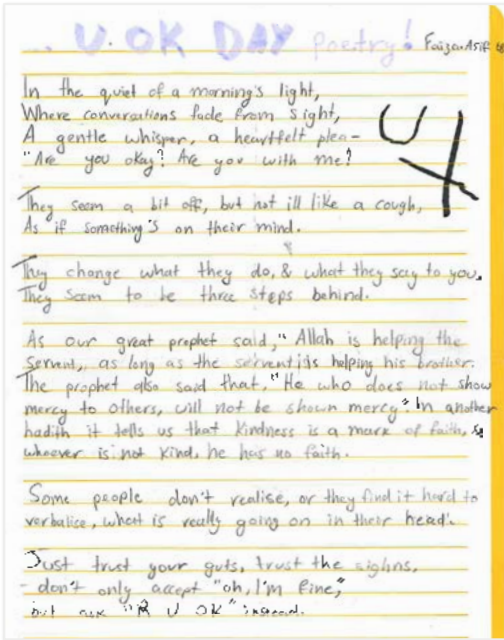 ... U. OK DAY Poetry! Faizan Asif
In the quiet of a morning's light,
Where conversations fade from sight,
A gentle whisper, a heartfelt plea-
"Are you okay? Are you with me?
They seem a bit off, but not ill like a cough,
As if something's on their mind.
They change what they do, & what they say to you.
They seem to be three steps behind.
As our great prophet said, "Allah is helping the
servent, as long as the servent is helping his brother.
The prophet also said that, "He who does not show
mercy to others, will not be shown mercy". In another
hadith it tells us that kindness is a mark of faith, &
whoever is not kind, he has no faith.
Some people don't realise, or they find it hard to
verbalise, what is really going on in their head.
Just trust your guts, trust the sighns,
- don't only accept "oh, I'm fine,"
but ask "R U OK" instead.